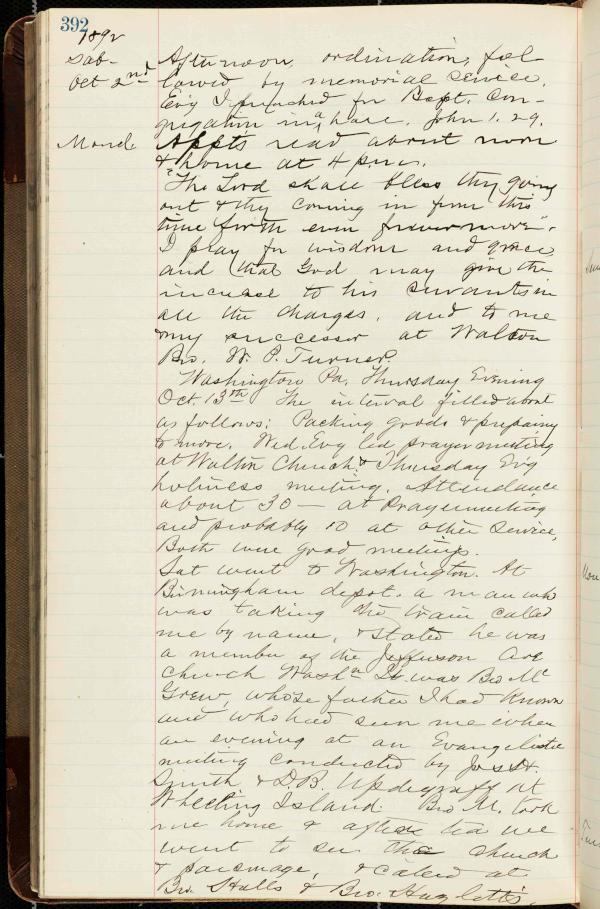 392
1892
Sab-
Oct 2nd
Afternoon, ordination, fol
lowed by memorial service.
Ev'g I preached for Bapt. Con-
gregation in a hall. John 1. 29.
Mond.
Appts read about noon
& home at 4 p.m.
"The Lord shall bless thy going
out & thy coming in from this
time forth even forevermore".
I pray for wisdom and grace
and that God may give the
increase to his servants in
all the charges, and to me
& my successor at Walton
Bro. W. P. Turner.
Washington Pa. Thursday Evening
Oct. 13th The interval filled about
as follows: Packing goods & preparing
to move. Wed. Ev'g led prayer meeting
at Walton Church & Thursday Ev'g
holiness meeting. Attendance
about 30 — at Prayermeeting
and probably 10 at other service,
Both were good meetings.
Sat went to Washington. At
Birmingham depot. a man who
was taking the train called
me by name, & stated he was
a member of the Jefferson Ave
Church Washn It was Bro Mc
Grew, whose father I had known
and who had seen me when
an evening at an Evangelistic
meeting conducted by Jos. H.
Smith & D. B. Updegraff at
Wheeling Island. Bro M. took
me home & after tea we
went to see the church
& parsonage, & called at
Bro. Stulls & Bro.